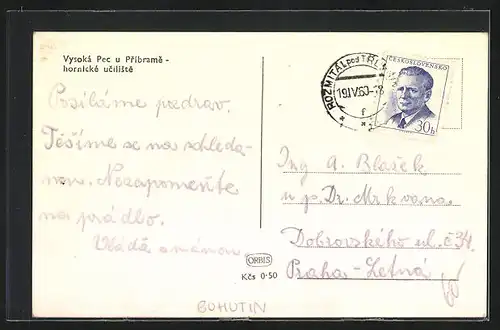 Vysoká Pec u Příbramě -
hornické učiliště
Posíláme pozdrav.
Těšíme se na shleda-
nou. Nezapomeňte
na prádlo.
Vláďa
ROŽMITÁL pod TŘ
19.IV.60-8
f
ČESKOSLOVENSKO
30h
Ing A. Blašek
u p. Dr. Mrkvana
Dobrovského ul. č 34.
Praha-Letná
ORBIS
Kčs 0·50
BOHUTIN